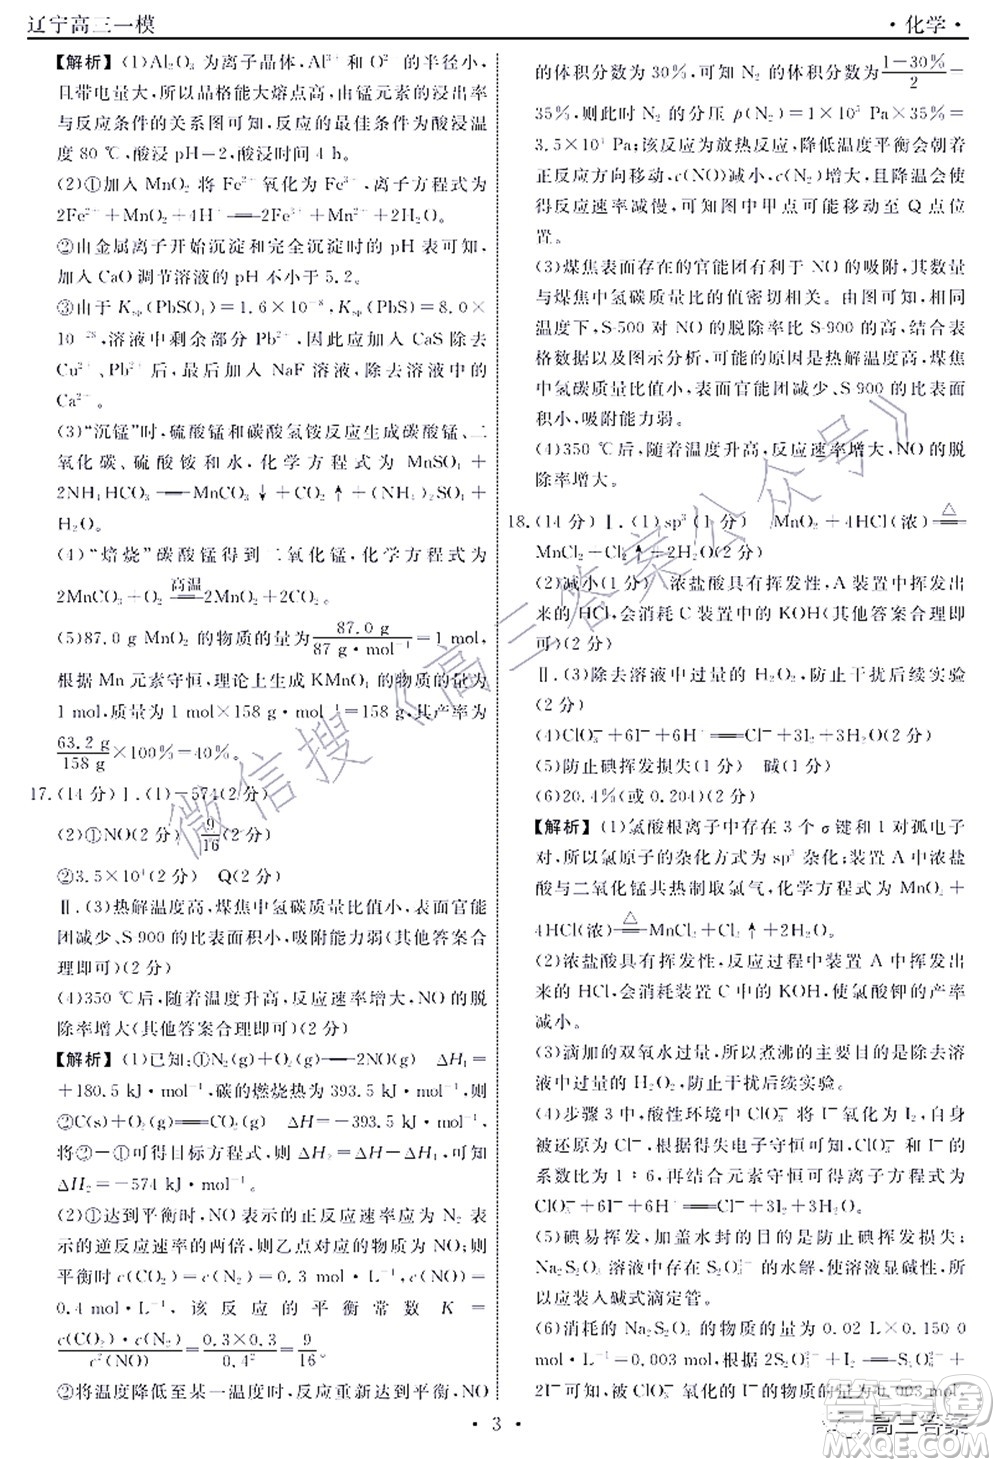 辽宁高三一模
·化学·
【解析】(1)Al₂O₃ 为离子晶体,Al³⁺ 和 O²⁻ 的半径小
且带电量大,所以晶格能大熔点高,由锰元素的浸出率
与反应条件的关系图可知,反应的最佳条件为酸浸温
度 80 ℃,酸浸 pH=2,酸浸时间 4 h。
(2)①加入 MnO₂ 将 Fe²⁺ 氧化为 Fe³⁺,离子方程式为
2Fe²⁺+MnO₂+4H⁺══2Fe³⁺+Mn²⁺+2H₂O。
②由金属离子开始沉淀和完全沉淀时的 pH 表可知,
加入 CaO 调节溶液的 pH 不小于 5.2。
③由于 Ksp(PbSO₄)=1.6×10⁻⁸,Ksp(PbS)=8.0×
10⁻²⁸,溶液中剩余部分 Pb²⁺,加入 CaS 除去
Cu²⁺、Pb²⁺ 后,最后加入 NaF 溶液,除去溶液中的
Ca²⁺。
(3)“沉锰”时,硫酸锰和碳酸氢铵反应生成碳酸锰、二
氧化碳、硫酸铵和水,化学方程式为 MnSO₄+
2NH₄HCO₃══MnCO₃↓+CO₂↑+(NH₄)₂SO₄+
H₂O。
(4)“焙烧”碳酸锰得到二氧化锰,化学方程式为
2MnCO₃+O₂ 高温══ 2MnO₂+2CO₂。
(5)87.0 g MnO₂ 的物质的量为 87.0 g/87 g·mol⁻¹=1 mol,
根据 Mn 元素守恒,理论上生成 KMnO₄ 的物质的量为
1 mol,质量为 1 mol×158 g·mol⁻¹=158 g,其产率为
63.2 g/158 g×100%=40%。
17.(14 分)Ⅰ.(1)-574(2 分)
(2)①NO(2 分) 9/16(2 分)
②3.5×10⁴(2 分) Q(2 分)
Ⅱ.(3)热解温度高,煤焦中氢碳质量比值小,表面官能
团减少、S-900 的比表面积小,吸附能力弱(其他答案合
理即可)(2 分)
(4)350 ℃后,随着温度升高,反应速率增大,NO 的脱
除率增大(其他答案合理即可)(2 分)
【解析】(1)已知:①N₂(g)+O₂(g)══2NO(g) ΔH₁=
+180.5 kJ·mol⁻¹,碳的燃烧热为 393.5 kJ·mol⁻¹,则
②C(s)+O₂(g)══CO₂(g) ΔH=-393.5 kJ·mol⁻¹,
将②-①可得目标方程式,根据盖斯定律可知
ΔH₂=-574 kJ·mol⁻¹。
(2)①达到平衡时,NO 表示的正反应速率应是 N₂ 表
示的逆反应速率的两倍,则乙点均表示 NO 的变化,则
平衡时 c(CO₂)=c(N₂)=0.3 mol·L⁻¹,c(NO)=
0.4 mol·L⁻¹,该反应的平衡常数 K=
c(CO₂)·c(N₂)/c²(NO)=0.3×0.3/0.4²=9/16。
②将温度降低至某温度,反应重新达到平衡时,NO
的体积分数为 30%,可知 N₂ 的体积分数为 1-30%/2=
35%,则此时 N₂ 的分压 p(N₂)=1×10⁵ Pa×35%=
3.5×10⁴ Pa;该反应为放热反应,降低温度平衡向着
正反应方向移动,c(NO)减小,c(N₂)增大,且降温会使
得反应速率减慢,可知图中甲点可能变化至 Q 点位
置。
(3)煤焦表面存在的官能团有利于 NO 的吸附,其数量
与煤焦中氢碳质量比的值密切相关。由图可知,相同
温度下,S-500 对 NO 的脱除率比 S-900 的高,结合表
格数据以及图示分析,可能的原因是热解温度高,煤焦
中氢碳质量比值小,表面官能团减少、S-900 的比表面
积小,吸附能力弱。
(4)350 ℃后,随着温度升高,反应速率增大,NO 的脱
除率增大。
18.(14 分)Ⅰ.(1)sp³(1 分) MnO₂+4HCl(浓) △══
MnCl₂+Cl₂↑+2H₂O(2 分)
(2)减小(1 分) 浓盐酸具有挥发性,A 装置中挥发出
来的 HCl,会消耗 C 装置中的 KOH(其他答案合理即
可)(2 分)
Ⅱ.(3)除去溶液中过量的 H₂O₂,防止干扰后续实验
(2 分)
(4)ClO₃⁻+6I⁻+6H⁺══Cl⁻+3I₂+3H₂O(2 分)
(5)防止碘挥发损失(1 分) 碱(1 分)
(6)20.4%(或 0.204)(2 分)
【解析】(1)氯酸根离子中存在 3 个 σ 键和 1 对孤电子
对,所以氯原子的杂化方式为 sp³ 杂化;装置 A 中浓盐
酸与二氧化锰共热制取氯气,化学方程式为 MnO₂+
4HCl(浓) △══ MnCl₂+Cl₂↑+2H₂O。
(2)浓盐酸具有挥发性,反应过程中 A 装置中挥发出
来的 HCl,会消耗 C 装置中的 KOH,使氯酸钾的产率
减小。
(3)滴加的双氧水过量,所以煮沸的主要目的是除去溶
液中过量的 H₂O₂,防止干扰后续实验。
(4)步骤 3 中,酸性环境中 ClO₃⁻ 将 I⁻ 氧化为 I₂,自身
被还原为 Cl⁻,根据得失电子守恒可知,ClO₃⁻ 和 I⁻ 的
系数比为 1∶6,再结合元素守恒可得离子方程式为
ClO₃⁻+6I⁻+6H⁺══Cl⁻+3I₂+3H₂O。
(5)碘易挥发,加盖水封的目的为防止碘挥发损失;
Na₂S₂O₃ 溶液中的 S₂O₃²⁻ 的水解,使溶液显碱性,所
以应装入碱式滴定管。
(6)消耗的 Na₂S₂O₃ 的物质的量为 0.02 L×0.150 0
mol·L⁻¹=0.003 mol,根据反应 2S₂O₃²⁻+I₂══S₄O₆²⁻+
2I⁻可知被 ClO₃⁻ 氧化的 I⁻ 的物质的量为 0.003 mol,
·3·
微信搜《高三答案公众号》
高三答案
MXQE.COM